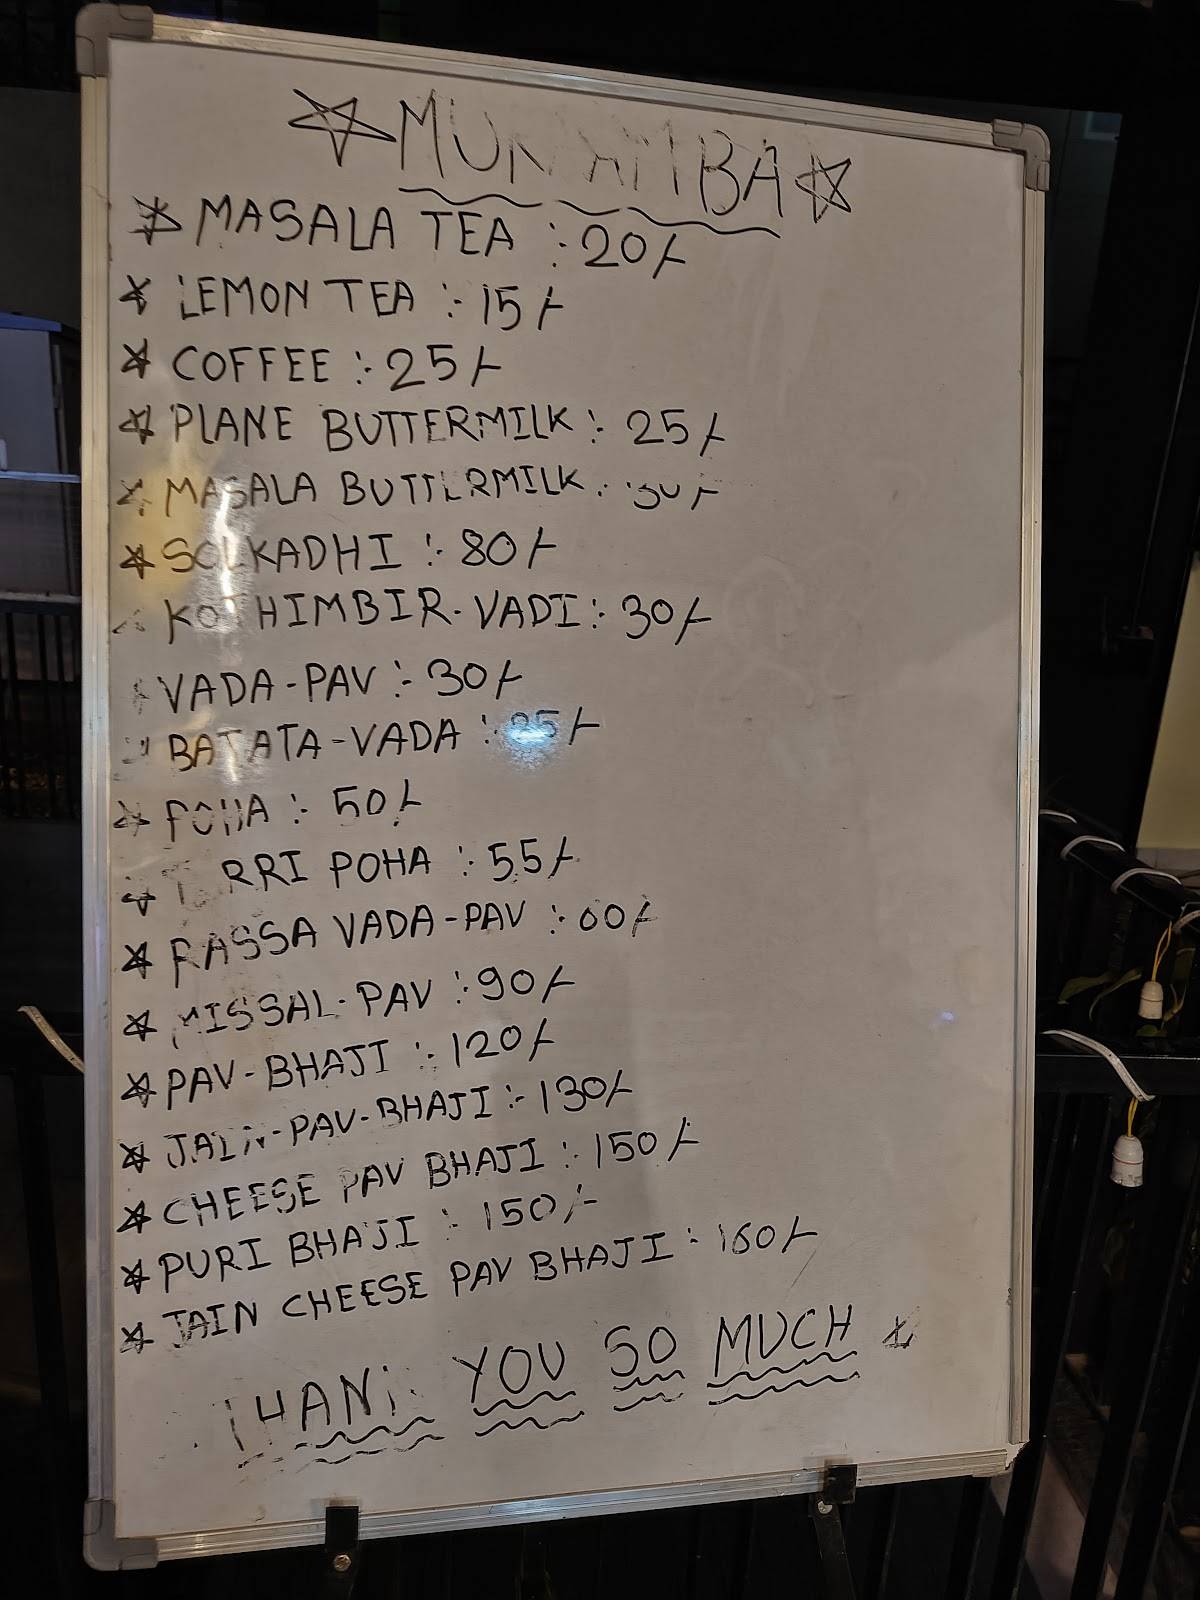 MASALA TEA :- 20/-
LEMON TEA :- 15/-
COFFEE :- 25/-
PLANE BUTTERMILK :- 25/-
MASALA BUTTERMILK
SOLKADHI :- 80/-
KOTHIMBIR-VADI :- 30/-
VADA-PAV :- 30/-
BATATA-VADA :- 25/-
POHA :- 50/-
POHA :- 55/-
RASSA VADA-PAV :- 60/-
MISSAL-PAV :- 90/-
PAV-BHAJI :- 120/-
JAIN-PAV-BHAJI :- 130/-
CHEESE PAV BHAJI :- 150/-
PURI BHAJI :- 150/-
JAIN CHEESE PAV BHAJI :- 160/-
THANK YOU SO MUCH